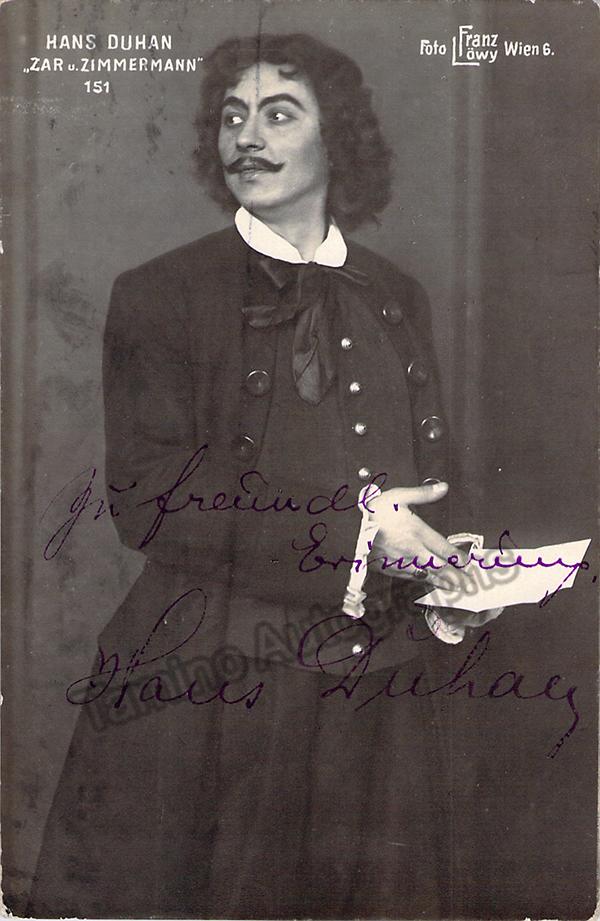 HANS DUHAN
„ZAR u. ZIMMERMANN"
151
Foto Franz Löwy Wien 6.
Zu freundl.
Erinnerung.
Hans Duhan
Tamino Autographs